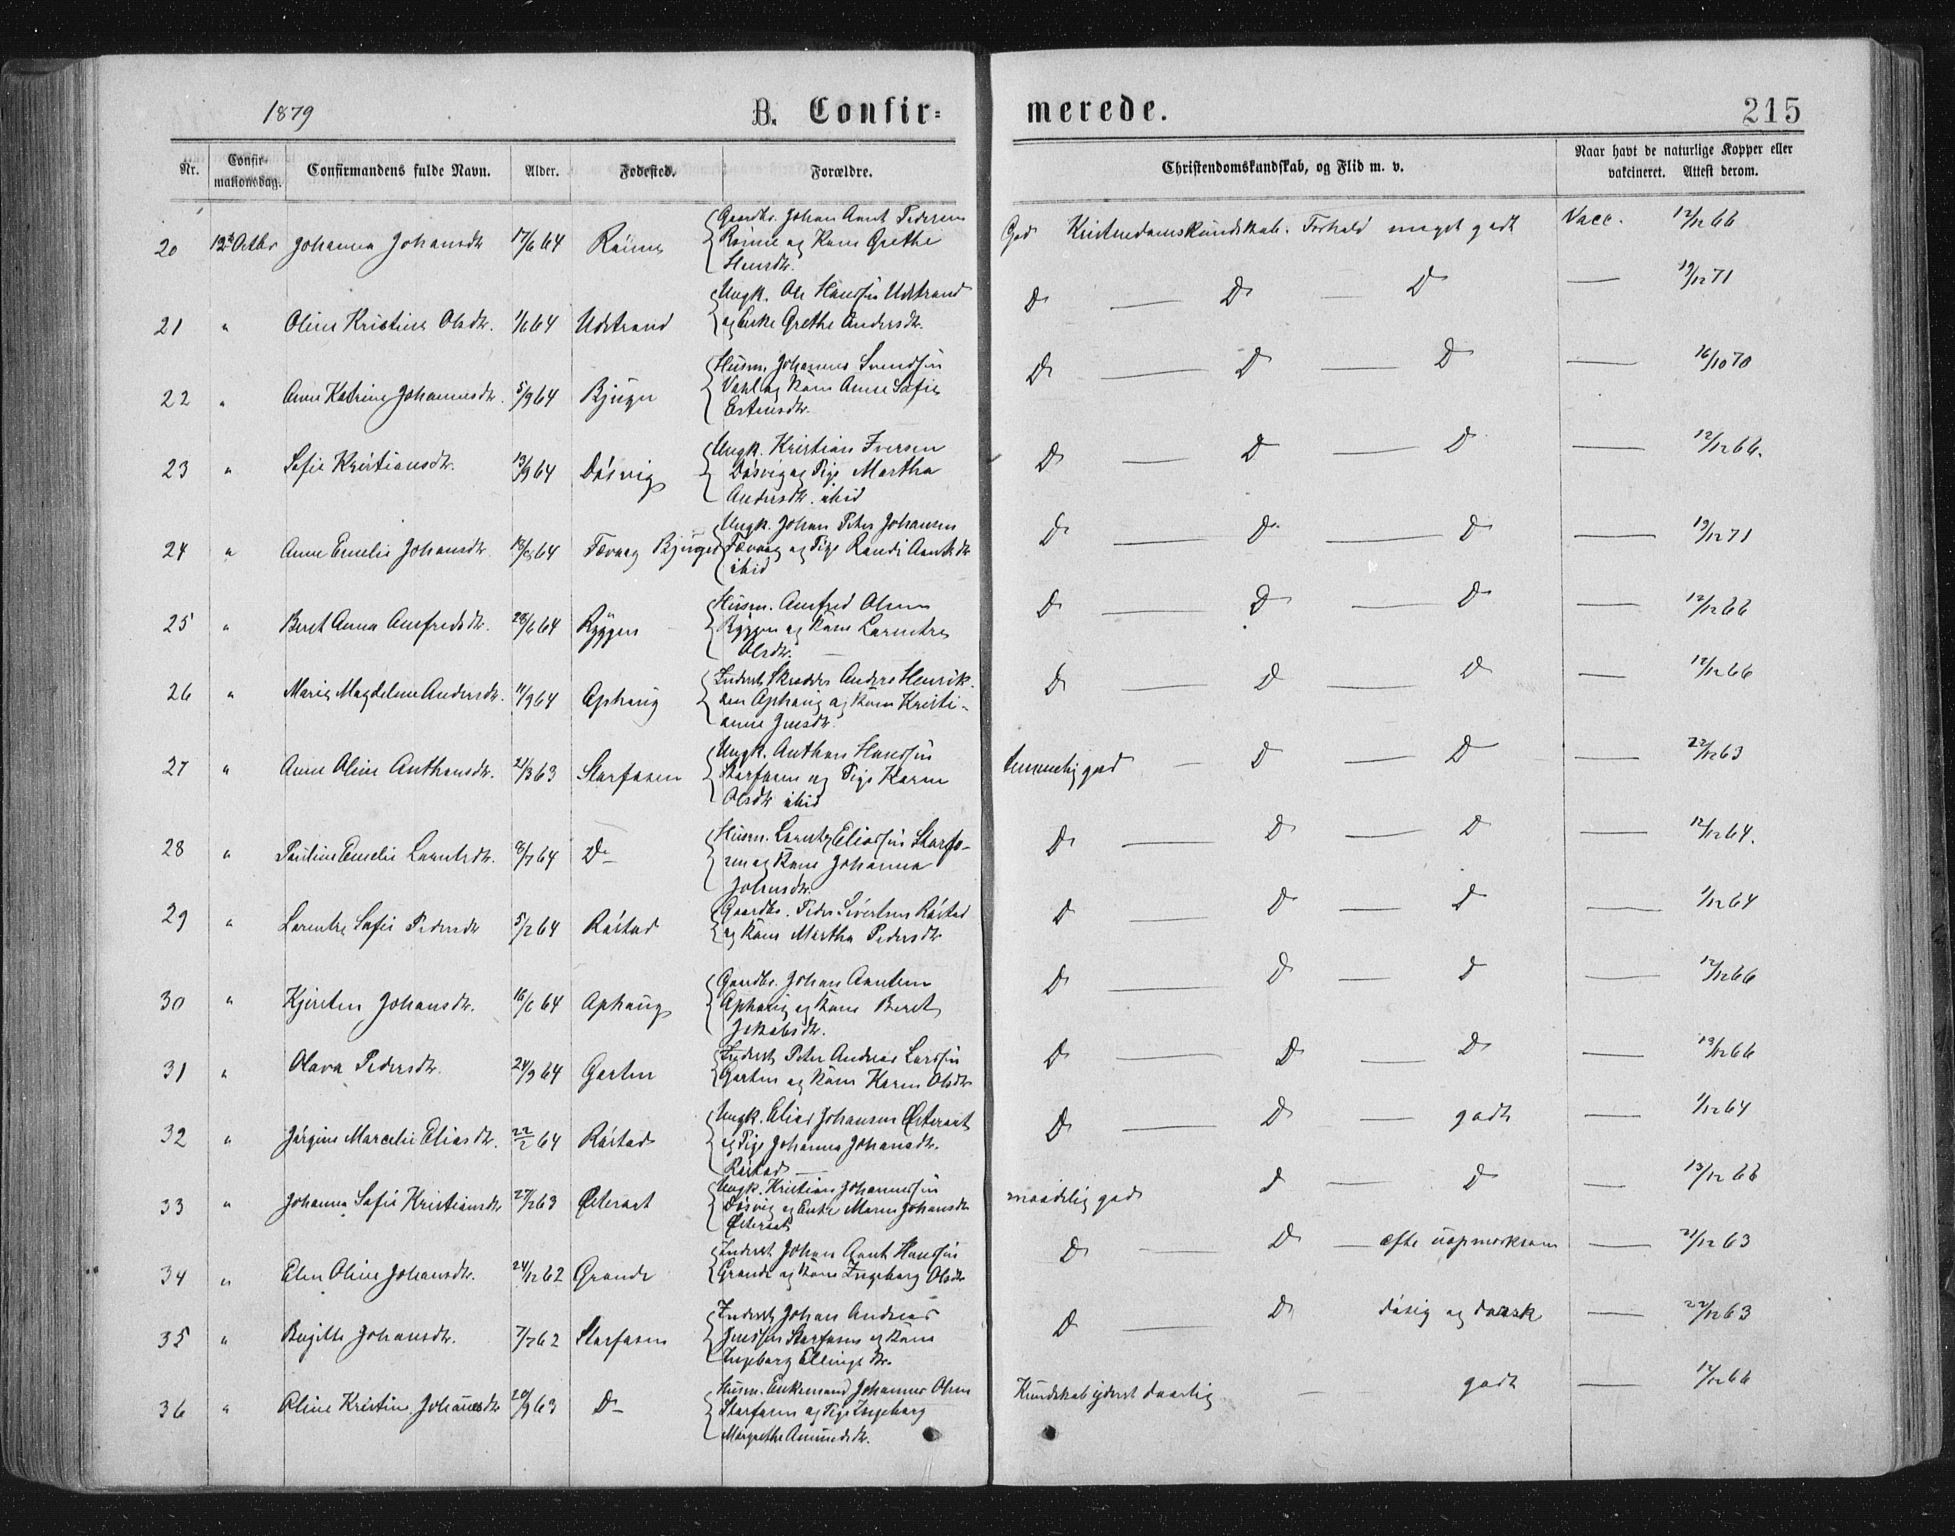 1879
B. Confir-
merede.
215
Nr.
Confir-
mationsdag.
Confirmandens fulde Navn.
Alder.
Fødested.
Forældre.
Christendomskundskab, og Flid m. v.
Naar havt de naturlige Kopper eller
vakcineret. Attest derom.
20 12t Octbr Johanna Johansdtr 17/6 64 Gaardbr. Johan Arnt Pedersen
og Kone Grethe
God Kristendomskundskab. Forhold meget godt Vacc. 12/12 66
21 " Oline Kristine Olsdtr. 1/6 64 Udstrand Ungk. Ole Hansen Udstrand
og Enke Grethe Andersdtr.
D D D — 19/12 71
22 " Anne Katrine Johannesdtr. 5/9 64 Bjugn Husm. Johannes Svendsen
og Kone Anne Sofie
Estensdtr.
D D D — 16/10 70
23 " Sofie Kristiansdtr. 13/9 64 Døsvig Ungk. Kristian Iversen
Døsvig og Pige Martha
Andersdtr. ibid
D D D — 12/12 66.
24 " Anne Emelie Johansdtr. 64 Tørvaag Bjugn Ungk. Johan Peter Johansen
og Pige Randi Arntsdtr
ibid
D D D — 19/12 71
25 " Beret Anna Amfredsdtr. 28/6 64 Ryggen Husm. Amfred Olsen
Ryggen og Kone Larentze
Olsdtr.
D D D — 12/12 66
26 " Marie Magdelene Andersdtr. 11/9 64 Ophaug Inderst Skrædder Anders Henrik-
sen Ophaug og Kone Kristi-
anne Jensdtr.
D D D — 12/12 66
27 " Anne Oline Anthonsdtr. 21/3 63 Storfosen Ungk. Anthon Hansen
Storfosen og Pige Karen
Olsdtr ibid
temmelig god D D — 22/12 63
28 " Pauline Emelie Lorntsdtr. 8/7 64 D Husm. Lorntz Eliassen Storfo-
sen og Kone Johanna
Johnsdtr.
D D D — 12/12 64.
29 " Larentze Sofie Pedersdtr 5/2 64 Røstad Gaardbr. Peder Sivertsen Røstad
og Kone Martha Pedersdtr
D D D — 1/12 64
30 " Kjersten Johansdtr. 16/6 64 Ophaug Gaardbr. Johan Arntsen
Ophaug og Kone Beret
Jakobsdtr.
D D D — 12/12 66
31 " Olava Pedersdtr. 24/9 64 Garten Inderst Peter Andreas Larssen
Garten og Kone Karen Olsdtr
D D D — 13/12 66
32 " Jørgine Marcelie Eliasdtr. 22/2 64 Røstad Ungk. Elias Johansen Østeraat
og Pige Johanna Johansdtr.
Røstad
D D godt — 1/12 64
33 " Johanna Sofie Kristiansdtr 27/12 63 Østeraat Ungk. Kristian Johannessen
Døsvig og Enke Maren Johansdtr
Østeraat
maadelig god D D — 13/12 66
34 " Elen Oline Johansdtr. 24/12 62 Grande Inderst Johan Arnt Hansen
Grande og Kone Ingeborg Olsdtr
D D ofte uopmerksom — 21/12 63
35 " Birgitte Johansdtr. 7/7 62 Storfosen Inderst Johan Andreas
Jenssen Storfosen og Kone
Ingeborg Ellingsdtr.
D D døsig og dorsk — 22/12 63
36 " Oline Kristine Johannesdtr 20/9 63 D Husm. Enkemand Johannes Olsen
Storfosen og Pige Ingeborg
Margrethe Amundsdtr.
Kundskab yderst daarlig — godt — 12/12 66